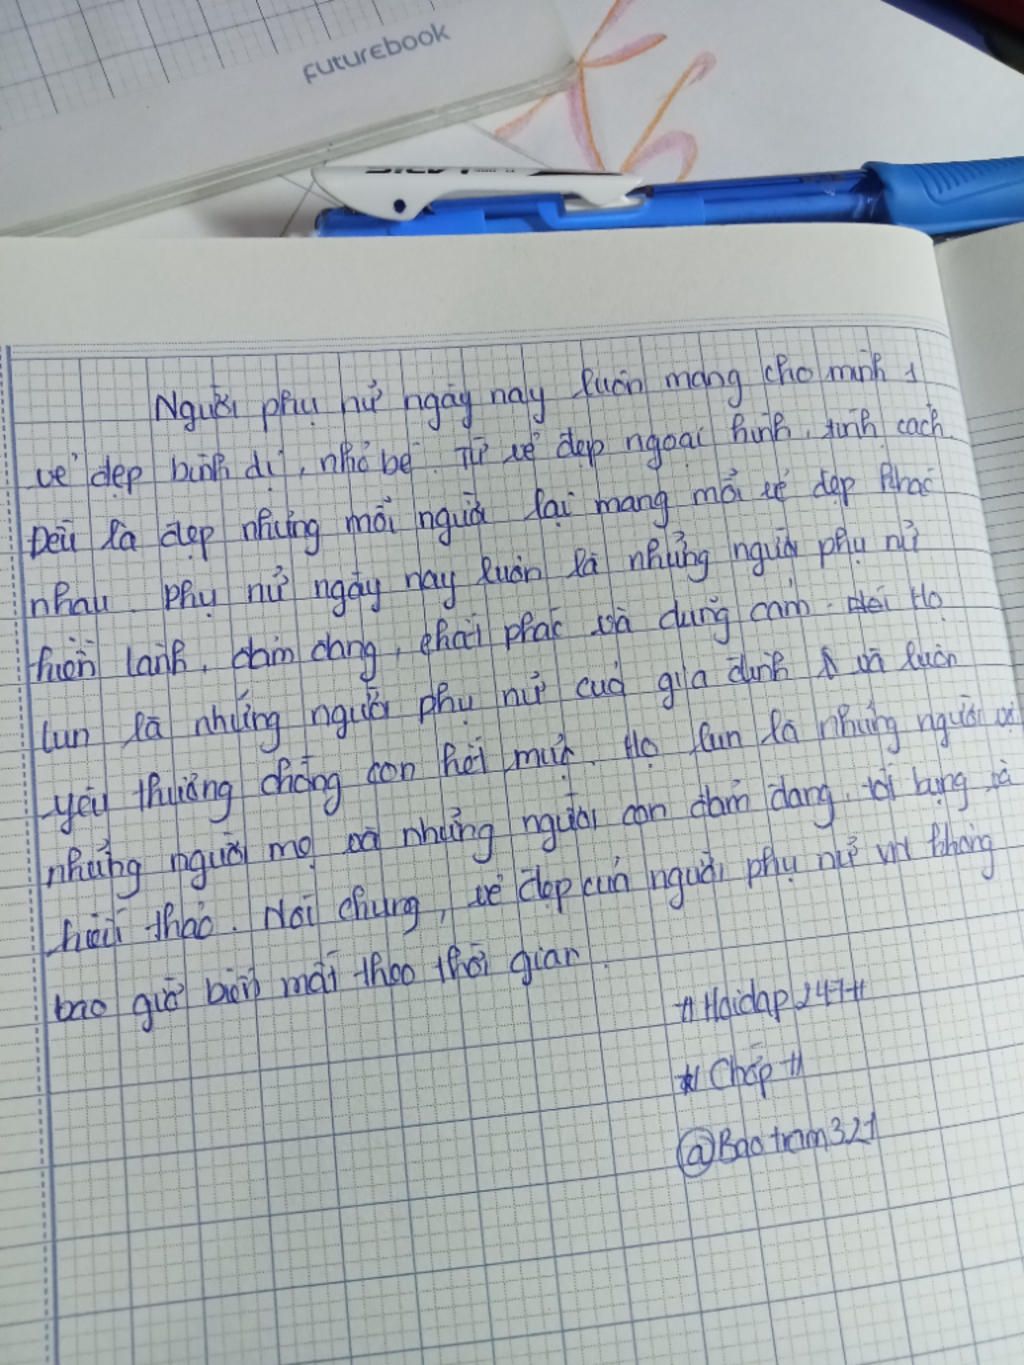 FUTUREBOOK
Người phụ nử ngày nay luôn mang cho mình 1
vẻ đẹp bình dị, nhỏ bé. Từ vẻ đẹp ngoại hình, tính cách.
Đều là đẹp nhưng mỗi người lại mang mỗi vẻ đẹp khác
nhau. Phụ nử ngày nay luôn là những người phụ nử
hiền lành, đảm đang, phác và dũng cảm. Họ
lun là những người phụ nử của gia đình và luôn
yêu thương chồng con hết mực. Họ lun là những người vợ
những người mẹ và những người con đảm đang, tốt bụng và
hiếu thảo. Nói chung, vẻ đẹp của người phụ nử VN không
bao giờ biến mất theo thời gian.
# Hoidap247 #
# Chốp #
@Baotram321